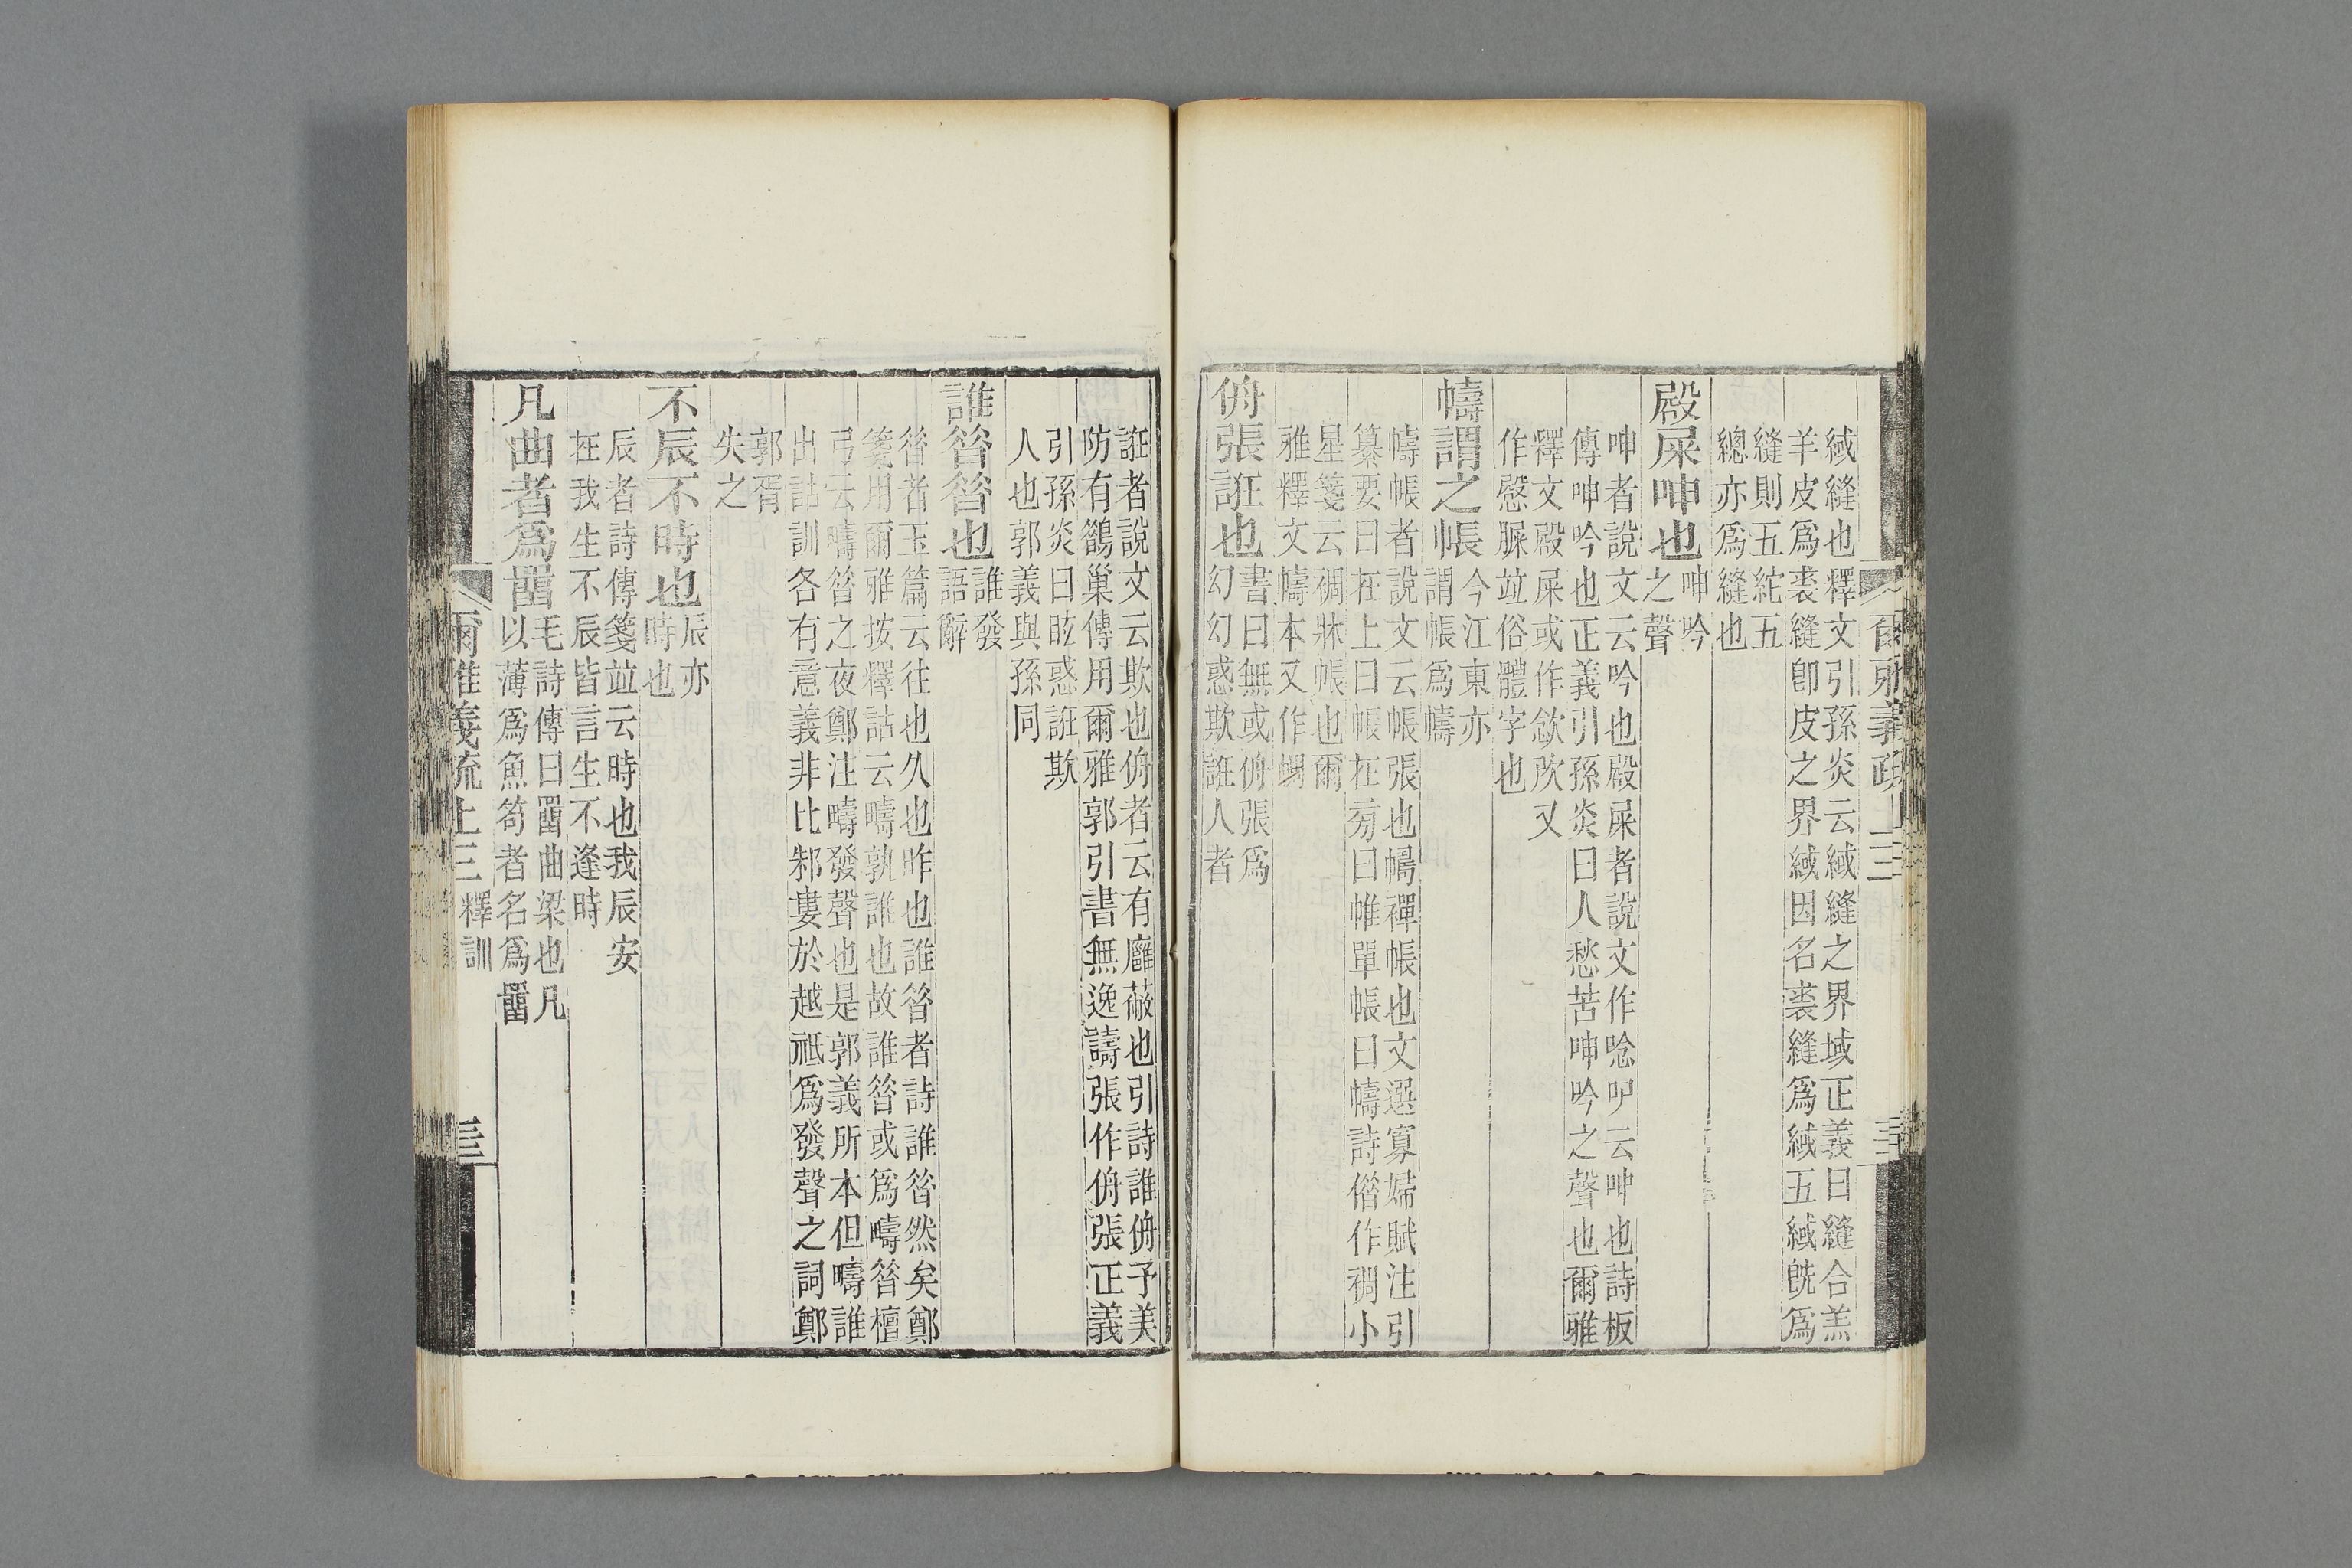 爾雅義疏 上三 三
緎縫也釋文引孫炎云緎縫之界域正義曰縫合羔
羊皮爲裘縫卽皮之界緎因名裘縫爲緎五緎旣爲
縫則五紽五
總亦爲縫也
殿屎呻也
呻吟
之聲
呻者說文云吟也殿屎者說文作唸㕧云呻也詩板
傳呻吟也正義引孫炎曰人愁苦呻吟之聲也爾雅
釋文殿屎或作欱欥又
作慇脲竝俗體字也
幬謂之帳
今江東亦
謂帳爲幬
幬帳者說文云帳張也幬襌帳也文選寡婦賦注引
纂要曰在上曰帳在旁曰帷單帳曰幬詩偺作裯小
星箋云裯牀帳也爾
雅釋文幬本又作㡡
侜張誑也
書曰無或侜張爲
幻幻惑欺誑人者
誑者說文云欺也侜者云有廱蔽也引詩誰侜予美
防有鶻巢傳用爾雅郭引書無逸譸張作侜張正義
引孫炎曰眩惑誑欺
人也郭義與孫同
誰昝昝也
誰發
語辭
昝者玉篇云往也久也昨也誰昝者詩誰昝然矣鄭
箋用爾雅按釋詁云疇孰誰也故誰昝或爲疇昝檀
弓云疇昝之夜鄭注疇發聲也是郭義所本但疇誰
出詁訓各有意義非比邾婁於越祇爲發聲之詞鄭
郭胥
失之
不辰不時也
辰亦
時也
辰者詩傳箋竝云時也我辰安
在我生不辰皆言生不逢時
凡曲者爲罶
毛詩傳曰罶曲梁也凡
以薄爲魚笱者名爲罶
爾雅義疏 上三 釋訓 三